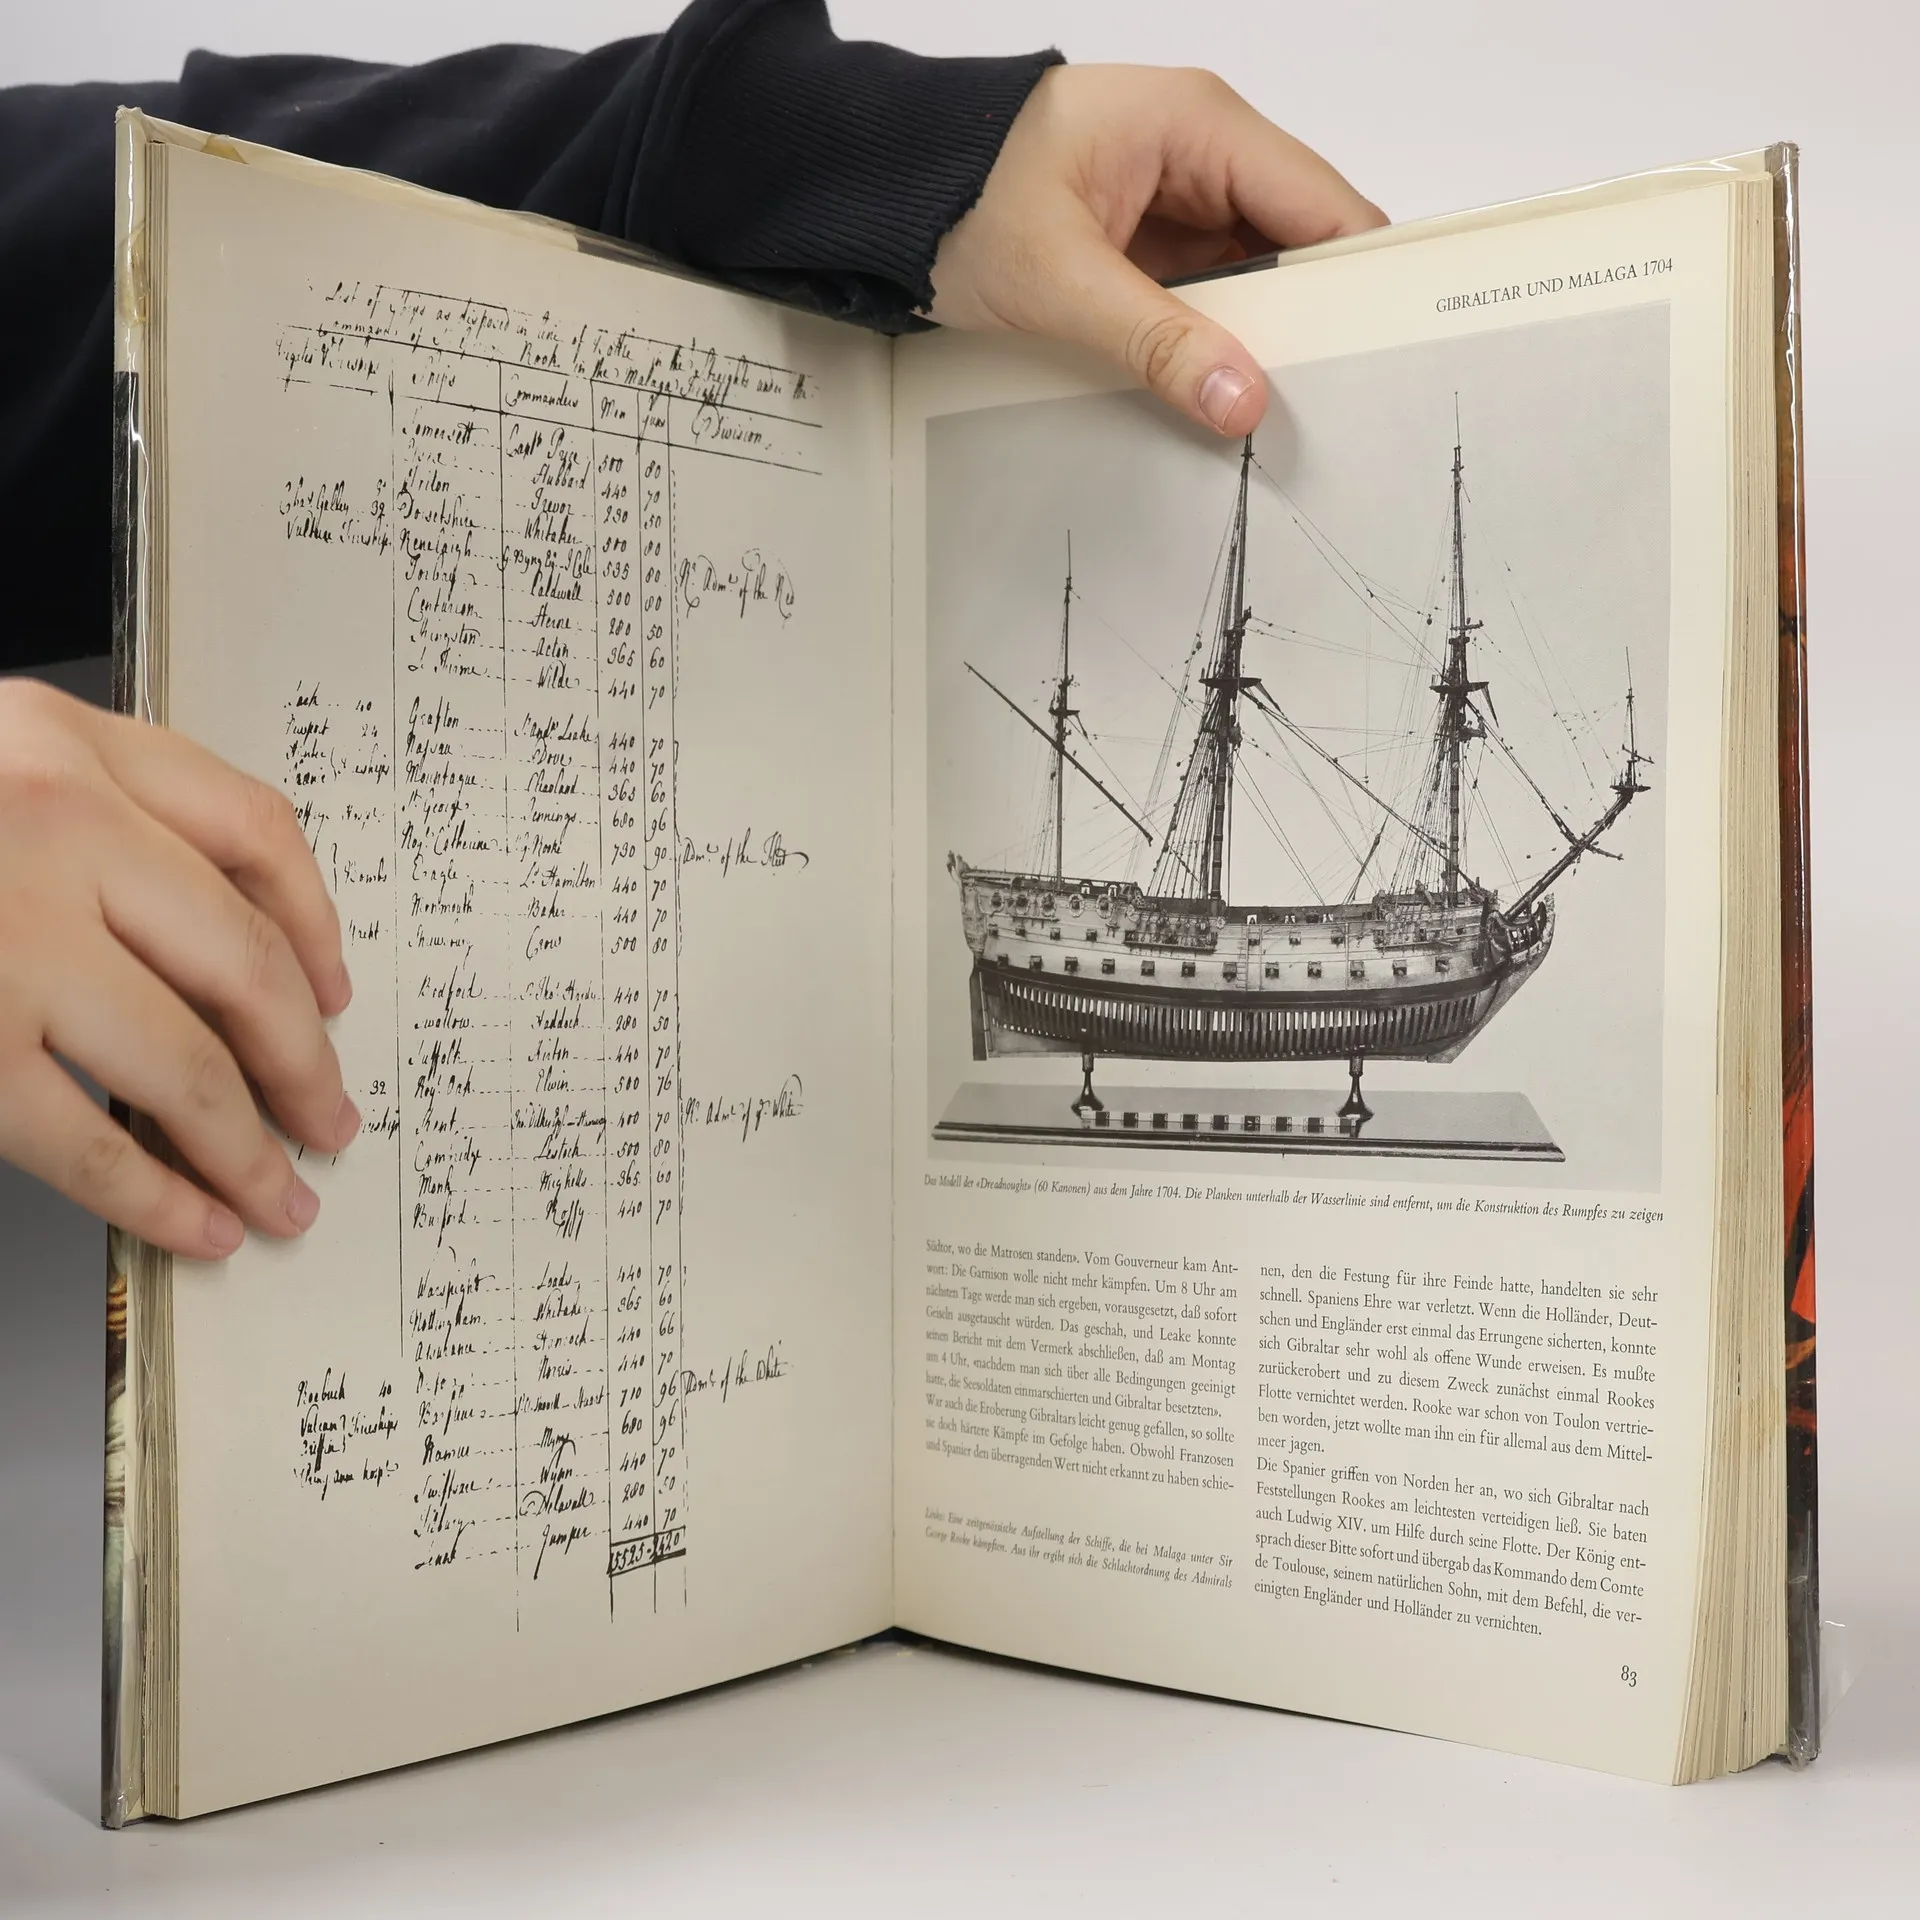 List of Ships as disposed in Line of Battle in the Streights under the
Command of Rook in the Malaga Fight
Ships Commanders Men Guns Division
Somersett Capt Price 500 80
Hubbard 440 70
Triton Trevor 230 50
Galley 32 Dorsetshire Whitaker 500 80
Vulture Fireship Ranelaigh G. Byng 535 80 Rr Adml of the Red
Torbay Caldwell 500 80
Centurion Herne 280 50
Kingston Acton 365 60
Wilde 440 70
40 Grafton Leake 440 70
Newport 24 Nassau Dove 440 70
Mountague Clealand 365 60
St George Jennings 680 96
Royl Catherine Rooke 730 90 Adml of the Fleet
Bombs Eagle Ld Hamilton 440 70
Monmouth Baker 440 70
Shrewsbury Crow 500 80
Bedford Hardy 440 70
Swallow Haddock 280 50
Suffolk Kirton 440 70
32 Royl Oak Elwin 500 76
Kent 400 70 Rr Adml of ye White
Cambridge Lestock 500 80
Monk Mighells 365 60
Burford Roffy 440 70
Warspight Loads 440 70
Nottingham Whitaker 365 60
Assurance Hancock 440 66
Norris 440 70
Roebuck 40 710 96 Adml of the White
Vulcan Fireships Namur Myngs 680 96
Griffin Swiftsure Wynn 440 70
Delavall 280 50
Jumper 440 70
15525 2420
GIBRALTAR UND MALAGA 1704
Das Modell der «Dreadnought» (60 Kanonen) aus dem Jahre 1704. Die Planken unterhalb der Wasserlinie sind entfernt, um die Konstruktion des Rumpfes zu zeigen
Südtor, wo die Matrosen standen». Vom Gouverneur kam Ant-
wort: Die Garnison wolle nicht mehr kämpfen. Um 8 Uhr am
nächsten Tage werde man sich ergeben, vorausgesetzt, daß sofort
Geiseln ausgetauscht würden. Das geschah, und Leake konnte
seinen Bericht mit dem Vermerk abschließen, daß am Montag
um 4 Uhr, «nachdem man sich über alle Bedingungen geeinigt
hatte, die Seesoldaten einmarschierten und Gibraltar besetzten».
War auch die Eroberung Gibraltars leicht genug gefallen, so sollte
sie doch härtere Kämpfe im Gefolge haben. Obwohl Franzosen
und Spanier den überragenden Wert nicht erkannt zu haben schie-
Links: Eine zeitgenössische Aufstellung der Schiffe, die bei Malaga unter Sir
George Rooke kämpften. Aus ihr ergibt sich die Schlachtordnung des Admirals
nen, den die Festung für ihre Feinde hatte, handelten sie sehr
schnell. Spaniens Ehre war verletzt. Wenn die Holländer, Deut-
schen und Engländer erst einmal das Errungene sicherten, konnte
sich Gibraltar sehr wohl als offene Wunde erweisen. Es mußte
zurückerobert und zu diesem Zweck zunächst einmal Rookes
Flotte vernichtet werden. Rooke war schon von Toulon vertrie-
ben worden, jetzt wollte man ihn ein für allemal aus dem Mittel-
meer jagen.
Die Spanier griffen von Norden her an, wo sich Gibraltar nach
Feststellungen Rookes am leichtesten verteidigen ließ. Sie baten
auch Ludwig XIV. um Hilfe durch seine Flotte. Der König ent-
sprach dieser Bitte sofort und übergab das Kommando dem Comte
de Toulouse, seinem natürlichen Sohn, mit dem Befehl, die ver-
einigten Engländer und Holländer zu vernichten.
83